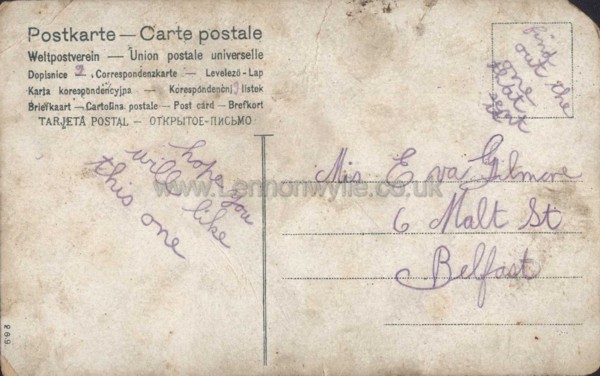 Postkarte — Carte postale
Weltpostverein — Union postale universelle
Dopisnice . Correspondenzkarte — Levelező - Lap
Karta korespondencyjna — Korespondenčni listek
Briefkaart — Cartolina postale — Post card — Brefkort
TARJETA POSTAL — ОТКРЫТОЕ-ПИСЬМО
find
out the
one
that
sent
it
hope you
will like
this one
Mis Eva Gilmore
6 Malt St
Belfast
www.Lennonwylie.co.uk